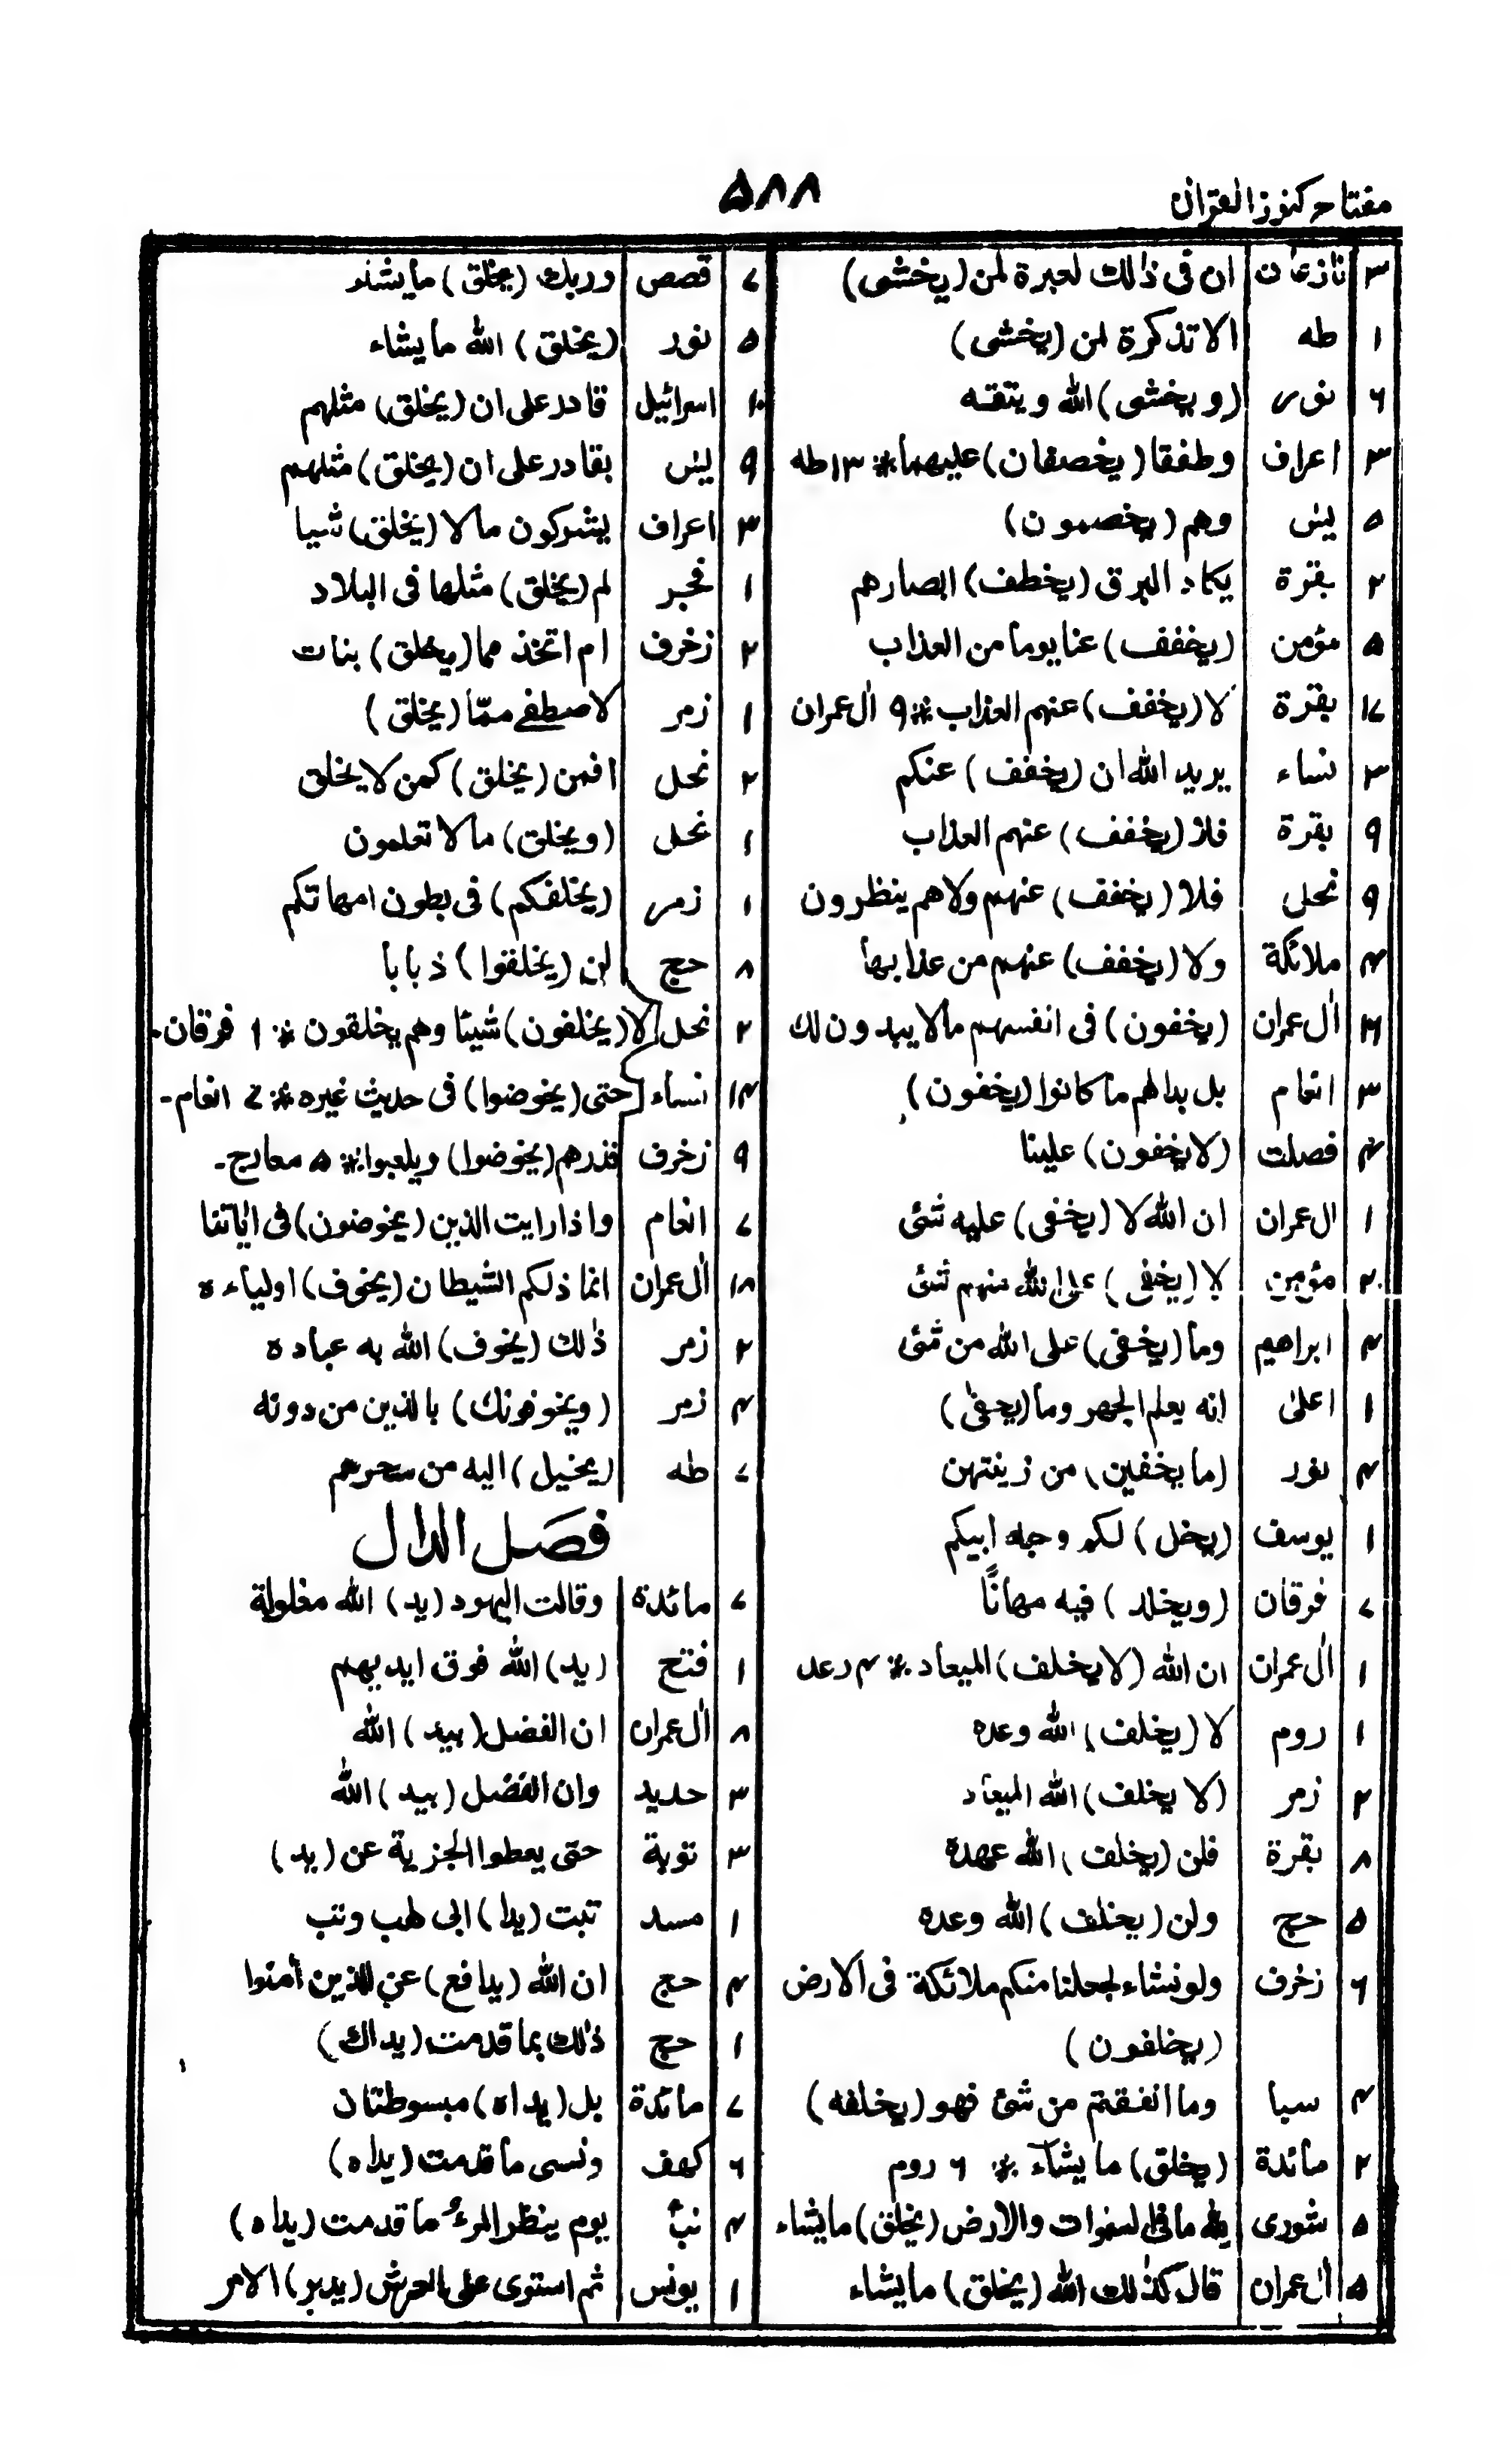 مفتاح كنوز القرآن
۵۸۸
۳ نازعات ان فى ذالك لعبرة لمن (يخشى)
۱ طه الا تذكرة لمن (يخشى)
۶ نور (ويخشى) الله ويتقه
۳ اعراف وطفقا (يخصفان) عليهما * ۱۳ طه
۵ يٰس وهم (يخصمون)
۲ بقرة يكاد البرق (يخطف) ابصارهم
۵ مؤمن (يخفف) عنا يوما من العذاب
۱۷ بقرة لا (يخفف) عنهم العذاب * ۹ اٰل عمران
۳ نساء يريد الله ان (يخفف) عنكم
۹ بقرة فلا (يخفف) عنهم العذاب
۹ نحل فلا (يخفف) عنهم ولاهم ينظرون
۴ ملائكة ولا (يخفف) عنهم من عذابها
۱۶ اٰل عمران (يخفون) فى انفسهم مالا يبدون لك
۳ انعام بل بدالهم ما كانوا (يخفون)
۴ فصلت (لايخفون) علينا
۱ ال عمران ان الله لا (يخفى) عليه شئ
۲ مؤمن لا (يخفى) على الله منهم شئ
۴ ابراهيم وما (يخفى) على الله من شئ
۱ اعلىٰ انه يعلم الجهر وما (يخفىٰ)
۴ نور (ما يخفين) من زينتهن
۱ يوسف (يخل) لكم وجه ابيكم
۷ فرقان (ويخلد) فيه مهانًا
۱ اٰل عمران ان الله (لا يخلف) الميعاد * ۴ رعد
۱ روم لا (يخلف) الله وعده
۲ زمر (لا يخلف) الله الميعاد
۸ بقرة فلن (يخلف) الله عهده
۵ حج ولن (يخلف) الله وعده
۶ زخرف ولو نشاء لجعلنا منكم ملائكة فى الارض
(يخلفون)
۴ سبا وما انفقتم من شئ فهو (يخلفه)
۲ مائدة (يخلق) ما يشآء * ۶ روم
۵ شورى لله ما فى السمٰوات والارض (يخلق) مايشاء
۵ اٰل عمران قال كذٰلك الله (يخلق) مايشاء
۷ قصص وربك (يخلق) مايشاء
۵ نور (يخلق) الله مايشاء
۱۰ اسرائيل قادر على ان (يخلق) مثلهم
۹ يٰس بقادر على ان (يخلق) مثلهم
۳ اعراف يشركون مالا (يخلق) شيا
۱ فجر لم (يخلق) مثلها فى البلاد
۲ زخرف ام اتخذ مما (يخلق) بنات
۱ زمر لاصطفے ممّا (يخلق)
۲ نحل افمن (يخلق) كمن لا يخلق
۱ نحل (ويخلق) مالا تعلمون
۱ زمر (يخلفكم) فى بطون امهاتكم
۸ حج لن (يخلقوا) ذبابا
۲ نحل لا (يخلقون) شيئا وهم يخلقون * ۱ فرقان-
۱۴ نساء حتى (يخوضوا) فى حديث غيره * ۷ انعام-
۹ زخرف فذرهم (يخوضوا) ويلعبوا * ۵ معارج-
۷ انعام واذا رايت الذين (يخوضون) فى اٰياتنا
۱۸ اٰل عمران انما ذلكم الشيطان (يخوف) اولياءه
۲ زمر ذٰلك (يخوف) الله به عباده
۴ زمر (ويخوفونك) بالذين من دونه
۷ طه (يخيل) اليه من سحرهم
فصل الدال
۷ مائدة وقالت اليهود (يد) الله مغلولة
۱ فتح (يد) الله فوق ايديهم
۸ اٰل عمران ان الفضل (بيد) الله
۳ حديد وان الفضل (بيد) الله
۳ توبة حتى يعطوا الجزية عن (يد)
۱ مسد تبت (يدا) ابى لهب وتب
۴ حج ان الله (يدافع) عن الذين اٰمنوا
۱ حج ذٰلك بما قدمت (يداك)
۷ مائدة بل (يداه) مبسوطتان
۶ كهف ونسى ما قدمت (يداه)
۴ نبأ يوم ينظر المرء ما قدمت (يداه)
۱ يونس ثم استوى على العرش (يدبر) الامر